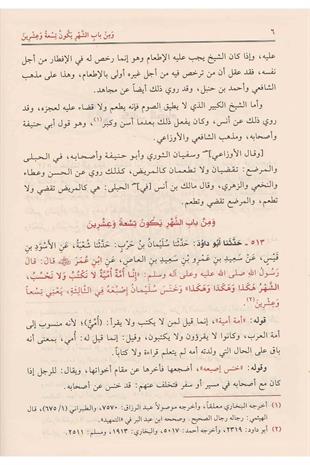 ٦
ومن باب الشهر يكون تسعة وعشرين
عليه، وإذا كان الشيخ يجب عليه الإطعام وهو إنما رخص له في الإفطار من أجل
نفسه، فقد عقل أن من ترخص فيه من أجل غيره أولى بالإطعام، وهذا على مذهب
الشافعي وأحمد بن حنبل، وقد روي ذلك أيضاً عن مجاهد.
وأما الشيخ الكبير الذي لا يطيق الصوم فإنه يطعم ولا قضاء عليه لعجزه، وقد
روي ذلك عن أنس، وكان يفعل ذلك بعدما أسن وكبر(١)، وهو قول أبي حنيفة
وأصحابه، ومذهب الشافعي والأوزاعي.
[وقال الأوزاعي] وسفيان الثوري وأبو حنيفة وأصحابه، في الحبلى
والمرضع: تقضيان ولا تطعمان كالمريض، كذلك روي عن الحسن وعطاء
والنخعي والزهري، وقال مالك بن أنس [في] الحبلى: هي كالمريض تقضي ولا
تطعم، والمرضع تقضي وتطعم.
وَمِنْ بَابِ الشَّهْرِ يَكُونُ تِسْعَةً وَعِشْرِينَ
٥١٣ ـ حَدَّثَنَا أَبُو دَاوُد: حَدَّثَنَا سُلَيْمَانُ بْنُ حَرْبٍ: حَدَّثَنَا شُعْبَةُ، عَنِ الأَسْوَدِ بنِ
قَيْسٍ، عَنْ سَعِيدِ بنِ عَمْرِو بْنِ سَعِيدِ بنِ العَاصِ، عَنِ ابْنِ عُمَرَ قَالَ: قَالَ
رَسُولُ اللهِ صلى الله عليه وعلى آله وسلم: «إِنَّا أُمَّةٌ أُمِّيَّةٌ لَا نَكْتُبُ وَلَا نَحْسُبُ،
الشَّهْرُ هَكَذَا وَهَكَذَا وَهَكَذَا» وَخَنَسَ سُلَيْمَانُ إِصْبَعَهُ فِي الثَّالِثَةِ، يَعْنِي تِسْعاً
وَعِشْرِينَ(٢).
قوله: «أمة أمية»، إنما قيل لمن لا يكتب ولا يقرأ: (أُمِّيٌّ)؛ لأنه منسوب إلى
أمة العرب، وكانوا لا يقرؤون ولا يكتبون، وقيل: إنما قيل له: أمي، بمعنى أنه
باق على الحال التي ولدته أمه لم يتعلم قراءة ولا كتاباً.
وقوله: «خنس إصبعه»، أضجعها فأخرها عن مقام أخواتها، ويقال: للرجل إذا
كان مع أصحابه في مسير أو سفر فتخلف عنهم: قد خنس عن أصحابه.
(١) أخرجه البخاري معلقاً، وأخرجه موصولاً عبد الرزاق: ٧٥٧٠، والطبراني (١/ ٦٧٥)، قال
الهيثمي: رجاله رجال الصحيح، وأخرجه ابن عبد البر في «التمهيد».
(٢) أبو داود: ٢٣١٩، وأخرجه أحمد: ٥٠١٧، والبخاري: ١٩١٣، ومسلم: ٢٥١١.